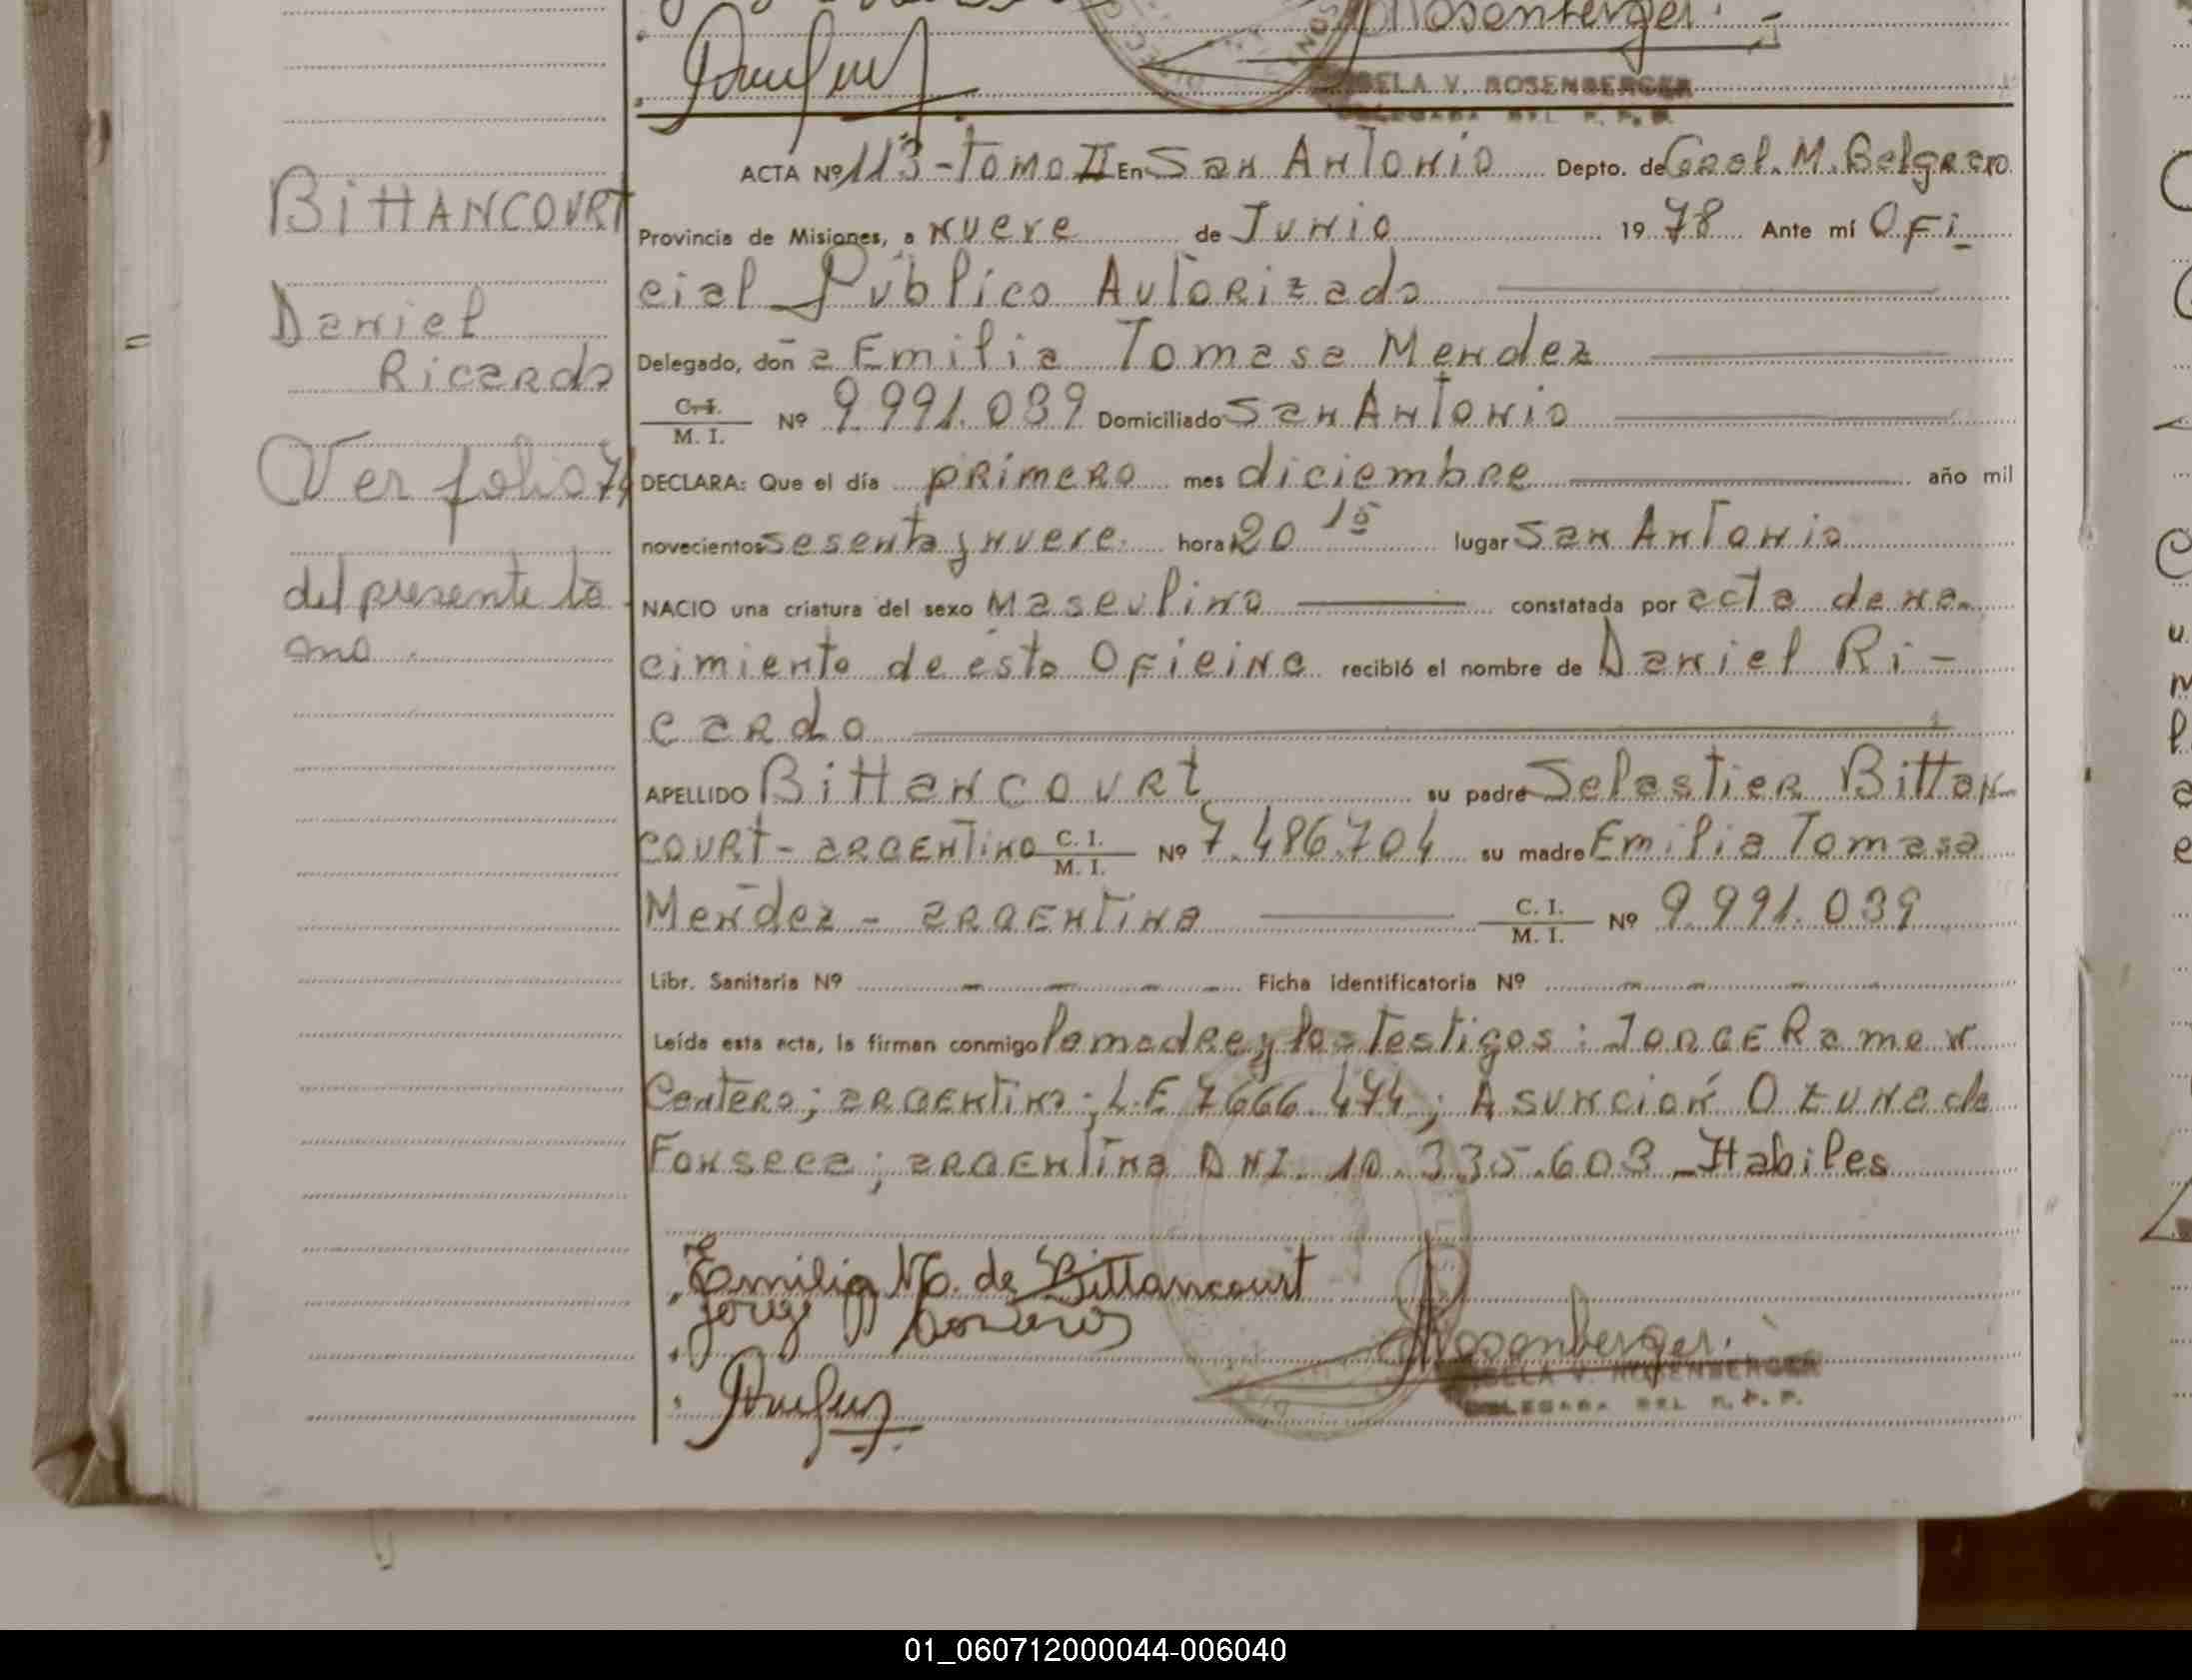 Rosenberger.
ELA V. ROSENBERGER
ACTA Nº 113 - Tomo II En San Antonio Depto. de Gral. M. Belgrano
BittANCOURT
Provincia de Misiones, a nueve de Junio 1978 Ante mí Ofi
cial Público Autorizado
Daniel
Ricardo
Delegado, don a Emilia Tomasa Mendez
C. I. / M. I. Nº 9.991.039 Domiciliado San Antonio
Ver folio 74
DECLARA: Que el día primero mes diciembre año mil
novecientos sesenta y nueve hora 20 15 lugar San Antonio
del presente to
mo.
NACIO una criatura del sexo Masculino constatada por acta de na-
cimiento de ésta Oficina recibió el nombre de Daniel Ri-
cardo
APELLIDO Bittancourt su padre Selastier Bittan
court - argentino C. I. / M. I. Nº 7.486.704 su madre Emilia Tomasa
Mendez - argentina C. I. / M. I. Nº 9.991.039
Libr. Sanitaria Nº Ficha identificatoria Nº
Leída esta acta, la firman conmigo la madre y los testigos: Jorge Ramon
argentino; L.E 7666.474; Asunción Ozuna de
Fonseca; argentina DNI. 10.335.603 - Habiles
Emilia M. de Bittancourt
Jorge
Rosenberger.
ELA V. ROSENBERGER
DELEGADA DEL R. P. P.
01_060712000044-006040